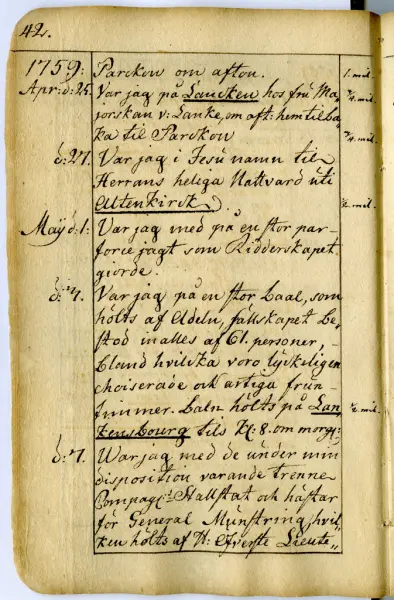 42.
1759: Parckow om afton. 1. mil.
Apr: d: 25. Var jag på Lancken hos fru Ma, ¾. mil.
jorskan v: Lanke, om aft: hem tilba,
ka til Parckow ¾. mil.
d: 27. Var jag i Jesu namn til
Herrans heliga Nattvard uti
Altenkirck. ½. mil.
Maÿ d: 1: Var jag med på en stor par,
force jagt som Ridderskapet
giorde.
d: 4. Var jag på en stor Baal, som
hölts af Adeln, sällskapet be,
stod in alles af 61. personer,
bland hvilcka voro lyckeligen
choiserade och artiga frun,
timmer. Baln hölts på Lan ½. mil.
kensbourg tils Kl: 8. om morg:
d: 7. War jag med de under min
disposition varande trenne
Compag: Stallstat och hästar
för General Munstring, hvil,
ken hölts af H: Öfverste Lieute,,